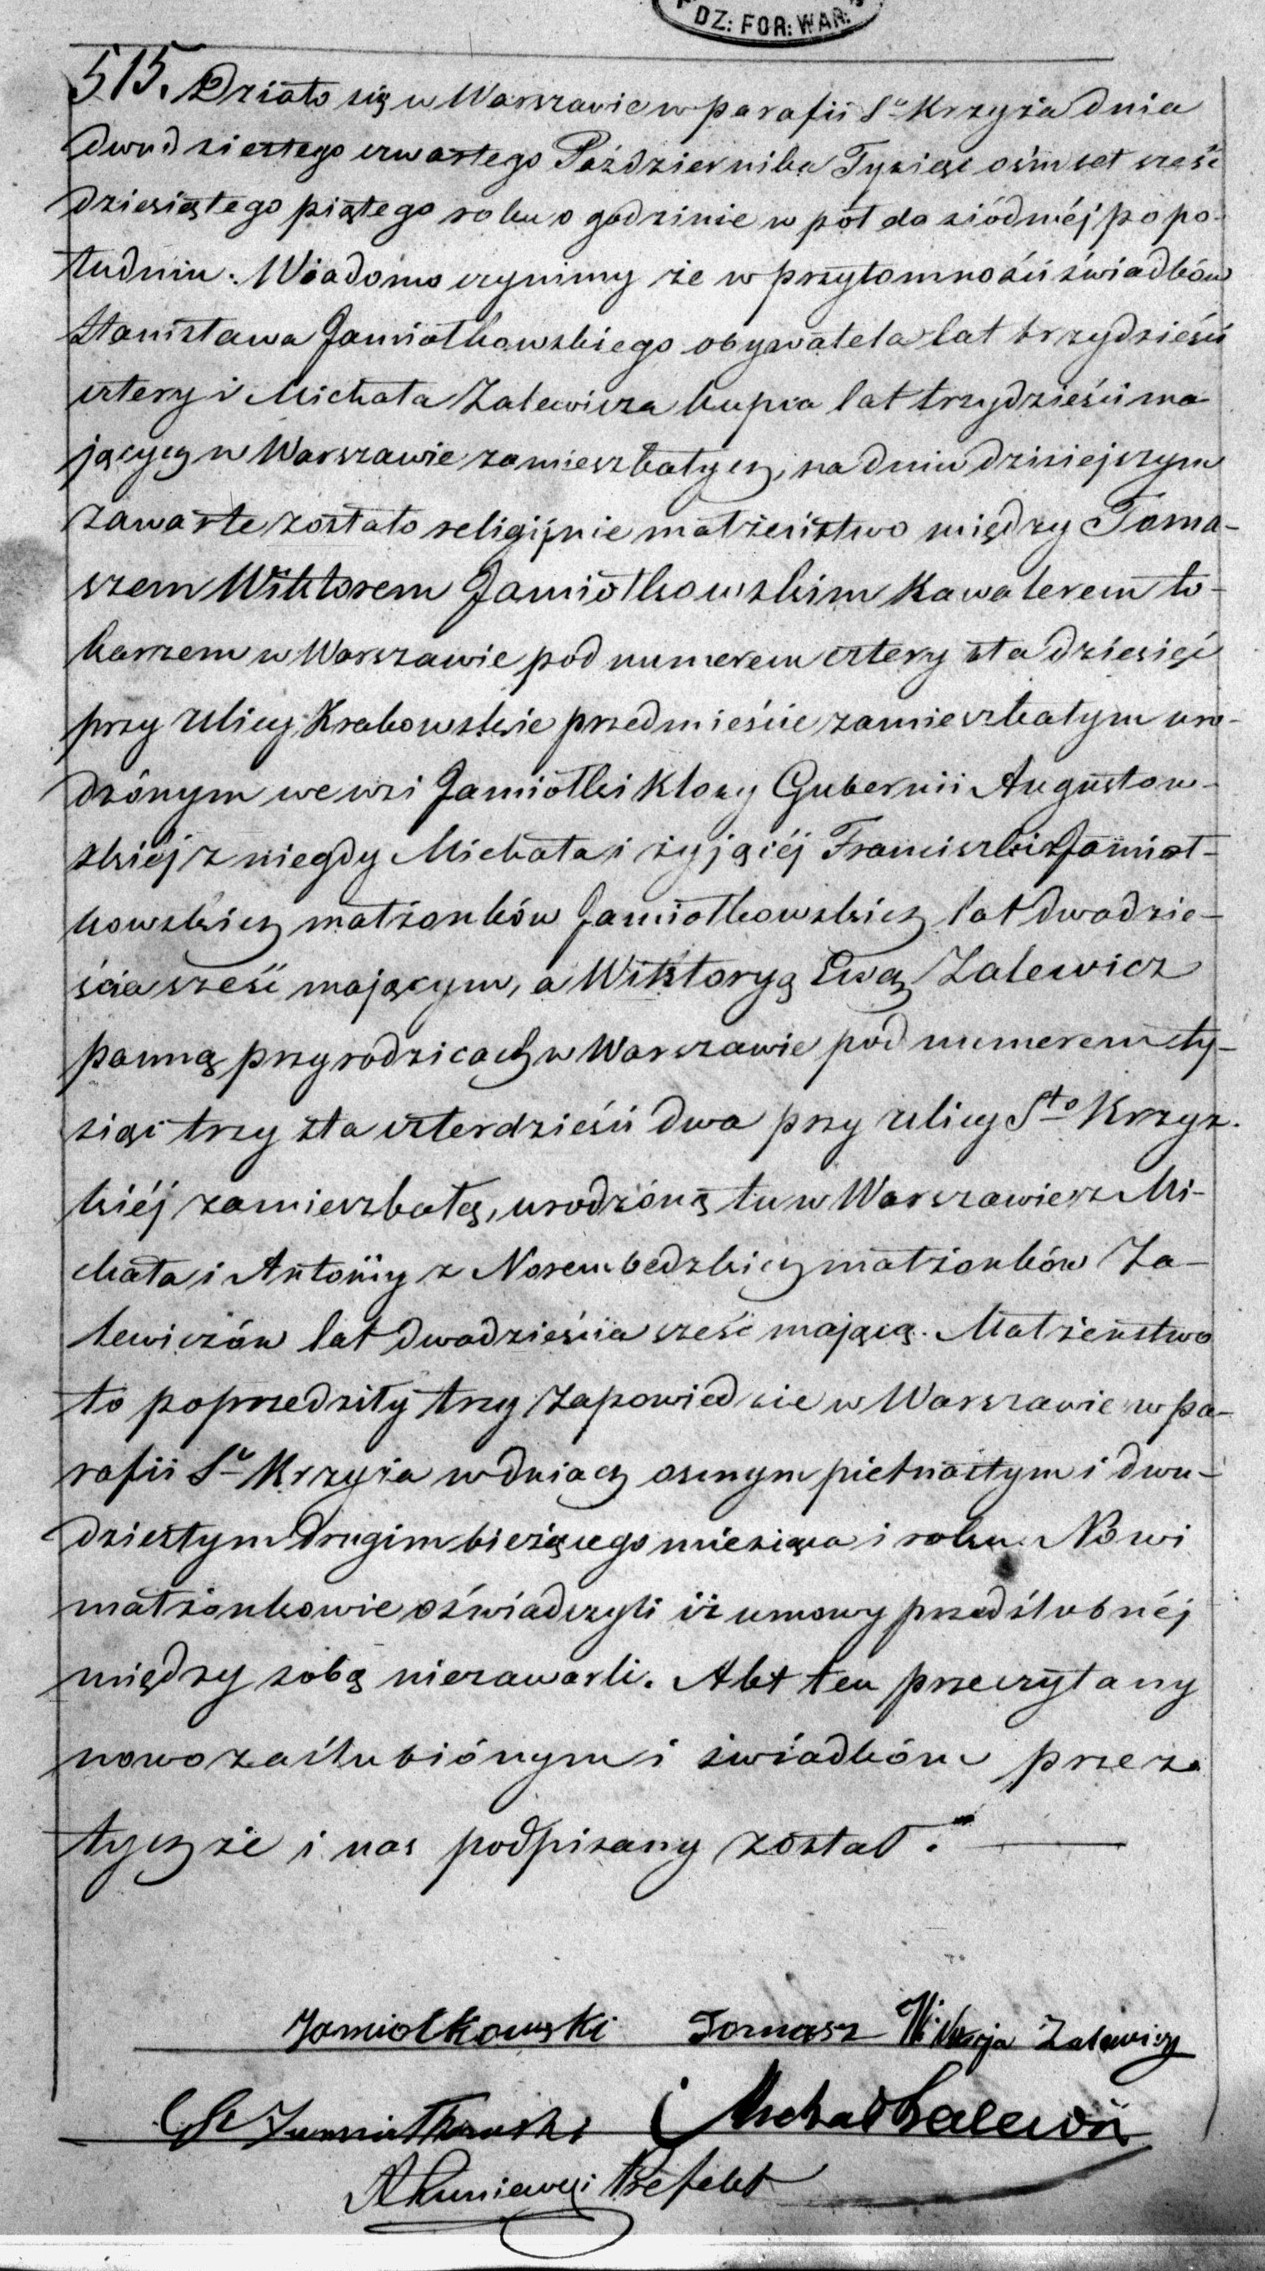 DZ: FOR: WAR:
515. Działo się w Warszawie w parafii Sgo Krzyża dnia
dwudziestego czwartego Października Tysiąc ośmset sześć
dziesiątego piątego roku o godzinie w pół do siódméj po po-
łudniu. Wiadomo czynimy że w przytomności świadków
Stanisława Jamiołkowskiego obywatela lat trzydzieści
cztery i Michała Zalewicza kupca lat trzydzieści ma
jących w Warszawie zamieszkałych, na dniu dzisiejszym
zawarte zostało religijnie małżeństwo między Toma-
szem Wiktorem Jamiołkowskim Kawalerem to-
karzem w Warszawie pod numerem cztery sta dziesięć
przy ulicy Krakowskie przedmieście zamieszkałym uro-
dzónym we wsi Jamiołki Kłosy Gubernii Augustow-
skiéj z niegdy Michała i żyjącéj Franciszki z Jamioł-
kowskich małżonków Jamiołkowskich lat dwadzie-
ścia sześć mającym, a Wiktoryą Ewą Zalewicz
panną przy rodzicach w Warszawie pod numerem ty-
siąc trzy sta czterdzieści dwa przy ulicy Sto Krzyz.
kiéj zamieszkałą, urodzóną tu w Warszawie z Mi-
chała i Antoniny z Norembedzkich małżonków Za-
lewiczów lat dwadzieścia sześć mającą. Małżeństwo
to poprzedziły trzy zapowiedzie w Warszawie w pa-
rafii Sgo Krzyża w dniach ósmym piętnastym i dwu-
dziestym drugim bieżącego miesiąca i roku. Nowi
małżonkowie oświadczyli iż umowy przedślubnéj
między sobą niezawarli. Akt ten przeczytany
nowozaślubiónym i świadkóm przez
tychże i nas podpisany został.
Jamiołkowski Tomasz Wiktorja Zalewicz
St Jamiołkowski Michał Zalewicz
Prefekt